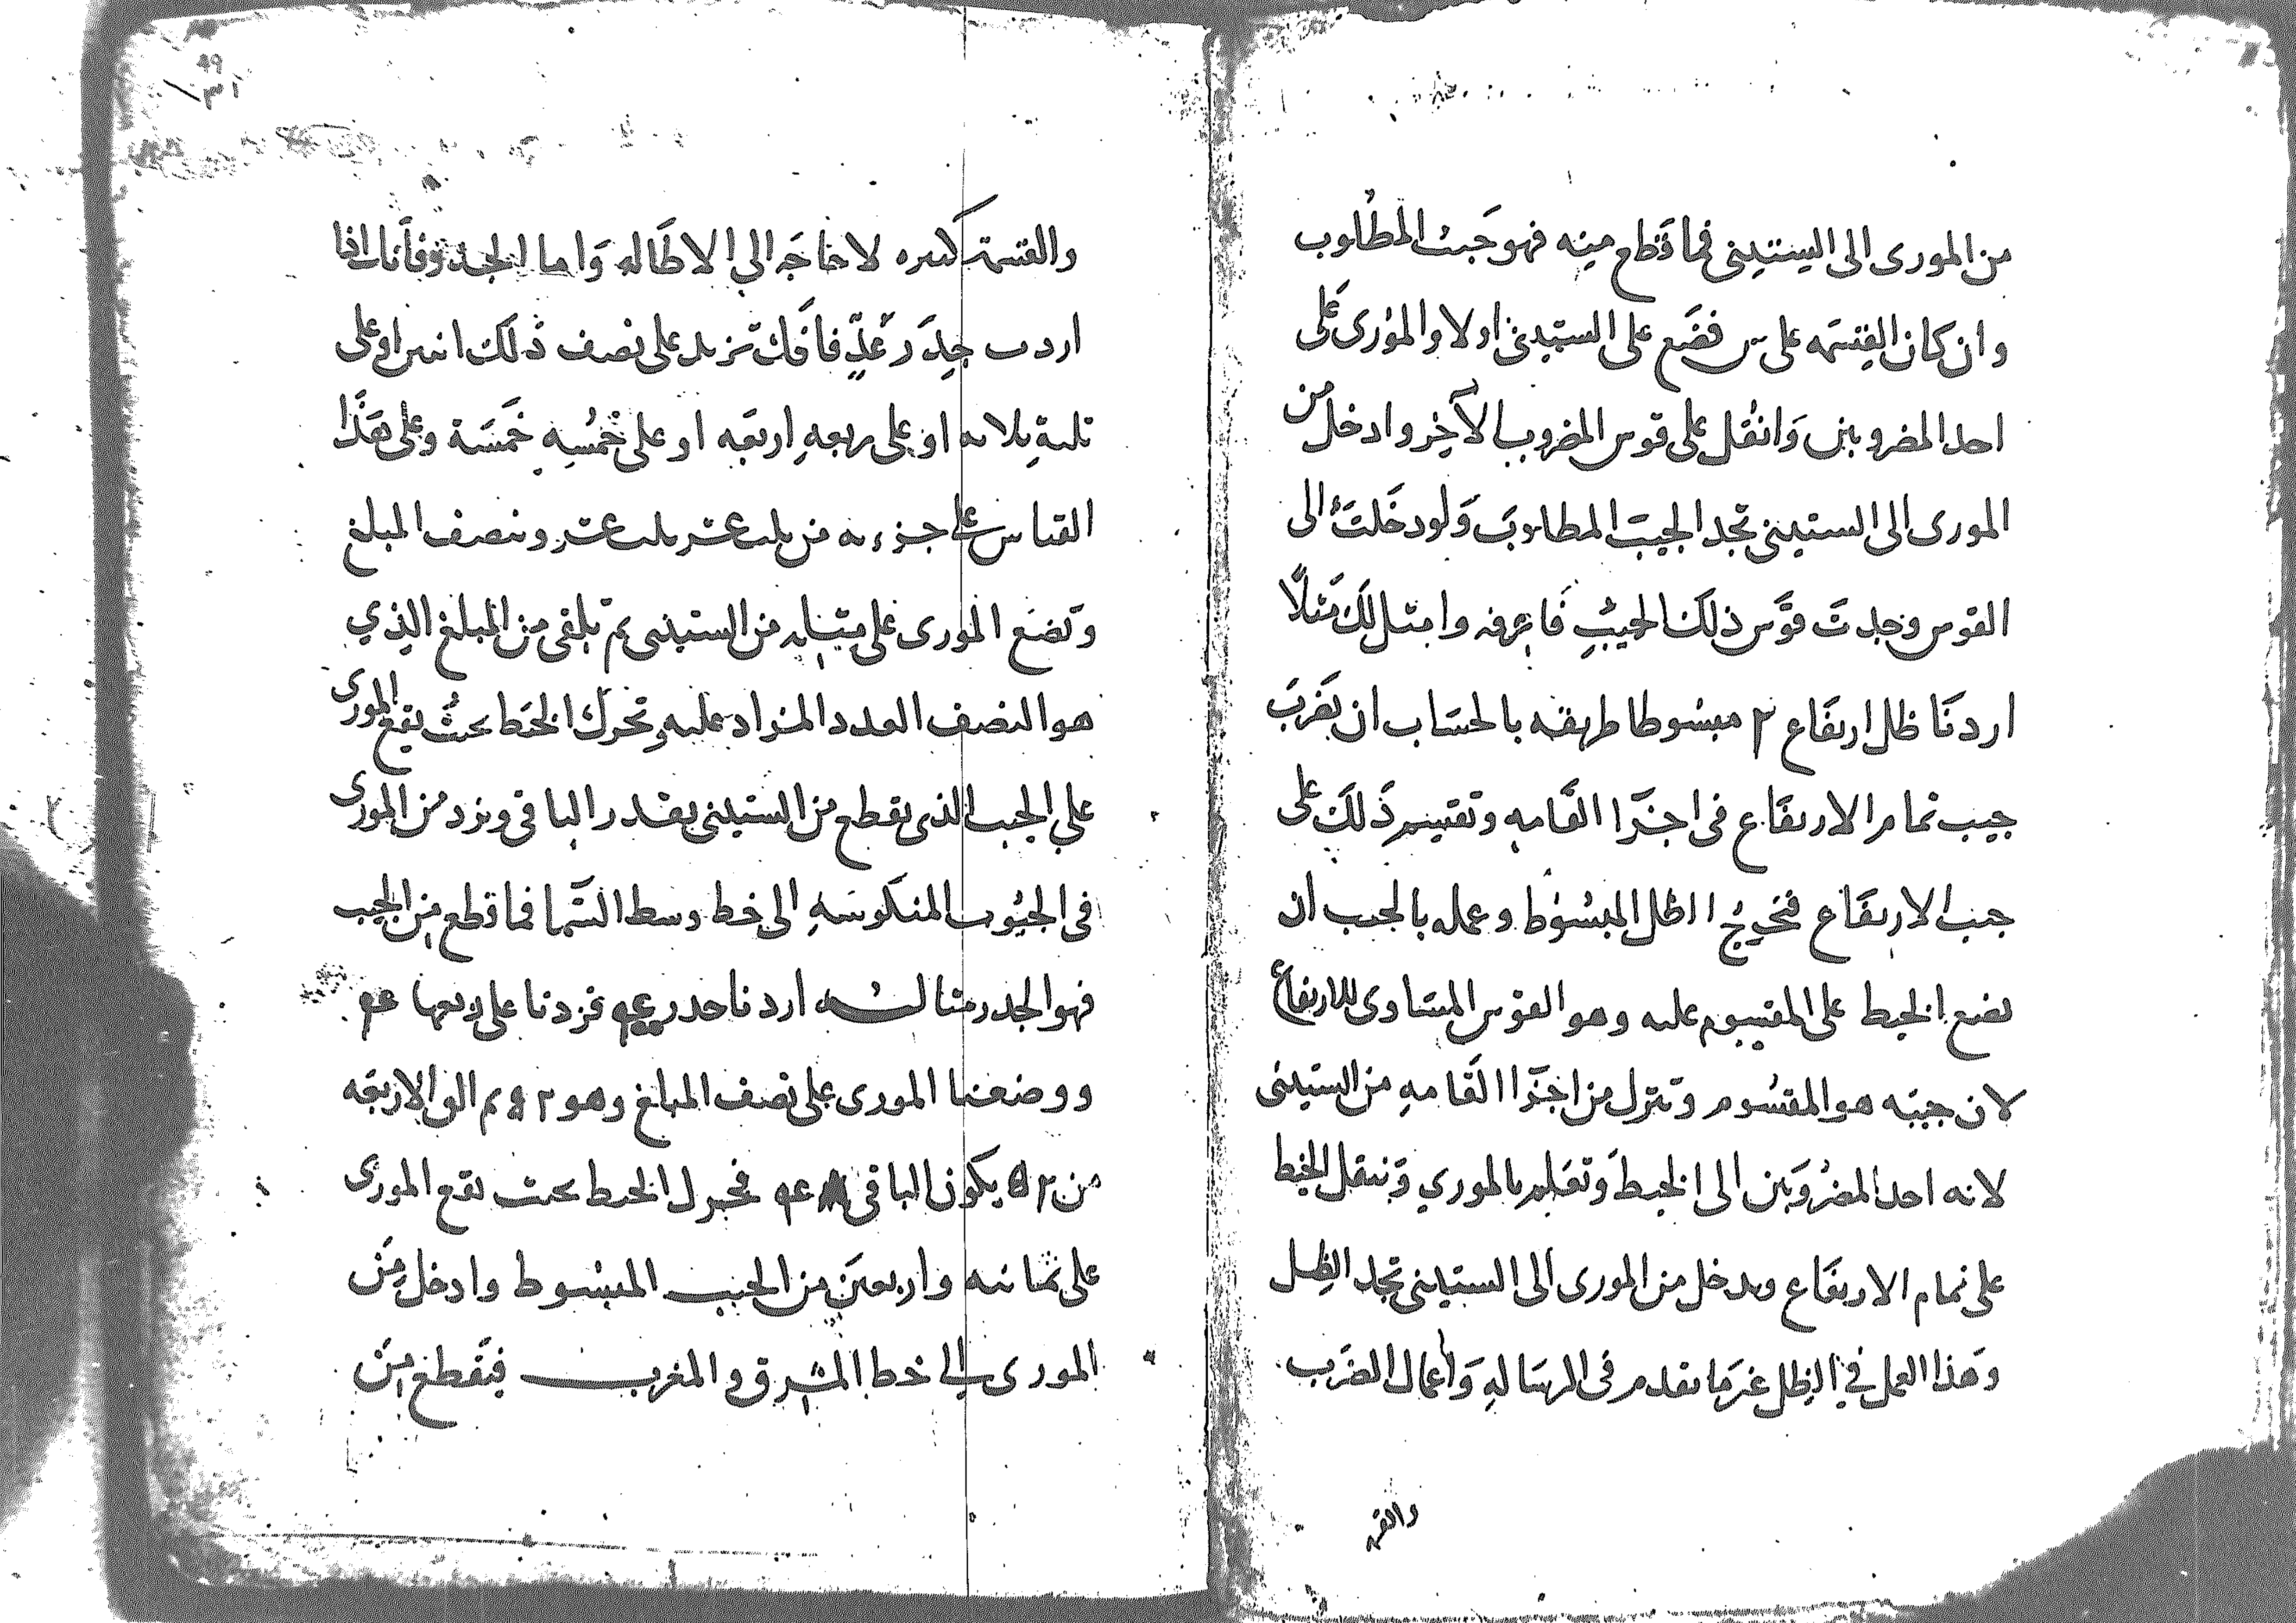 من المورى الى الستينى فما قطع مينه فهو جيب المطلوب
وان كان القسمه على س فضع على الستينى اولا والمورى على
احد المضروبين وانقل على قوس المضروب الآخر وادخل من
المورى الى الستينى تجد الجيب المطلوب ولو دخلت الى
القوس وجدت قوس ذلك الجيب فاعرفه وامثل لك مثلا
اردنا ظل ارتفاع مبسوطا طريقه بالحساب ان تضرب
جيب تمام الارتفاع فى اجزا القامه وتقسم ذلك على
جيب الارتفاع فتخرج الظل المبسوط وعمله بالجيب ان
تضع الخيط على المقسوم عليه وهو القوس المساوى للارتفاع
لان جيبه هو المقسوم وتنزل من اجزا القامه من الستينى
لانه احد المضروبين الى الخيط وتعلم بالمورى وتنقل الخيط
على تمام الارتفاع وتدخل من المورى الى الستينى تجد الظل
وهذا العمل فى الظل غير ما تقدم فى الرساله واعمال الضرب
والقسمة
والقسمة كثيره لا حاجه الى الاطاله واما الجذر فأنك اذا
اردت جذر عدد فانك تزيد على نصف ذلك اثنين او على
ثلثه ثلاثه او على ربعه اربعه او على خمسه خمسة وعلى هذا
القياس على جزء من ثلث عشر ثلث عشر وتنصف المبلغ
وتضع المورى على مثله من الستينى ثم تلقى من المبلغ الذي
هو النصف العدد المزاد عليه وتحرك الخيط بحيث يقع المورى
على الجيب الذى يقطع من الستينى بقدر الباقى وتزد من المورى
فى الجيوب المنكوسه الى خط وسط السما فما قطع من الجيب
فهو الجذر مثاله اردنا جذر فزدنا على ربعها
ووضعنا المورى على نصف المبلغ وهو ٥٢ ثم القى الاربعه
من ٥٢ يكون الباقى فحول الخيط بحيث يقع المورى
على ثمانيه واربعين من الجيب المبسوط وادخل من
المورى الى خط المشرق والمغرب فيقطع من